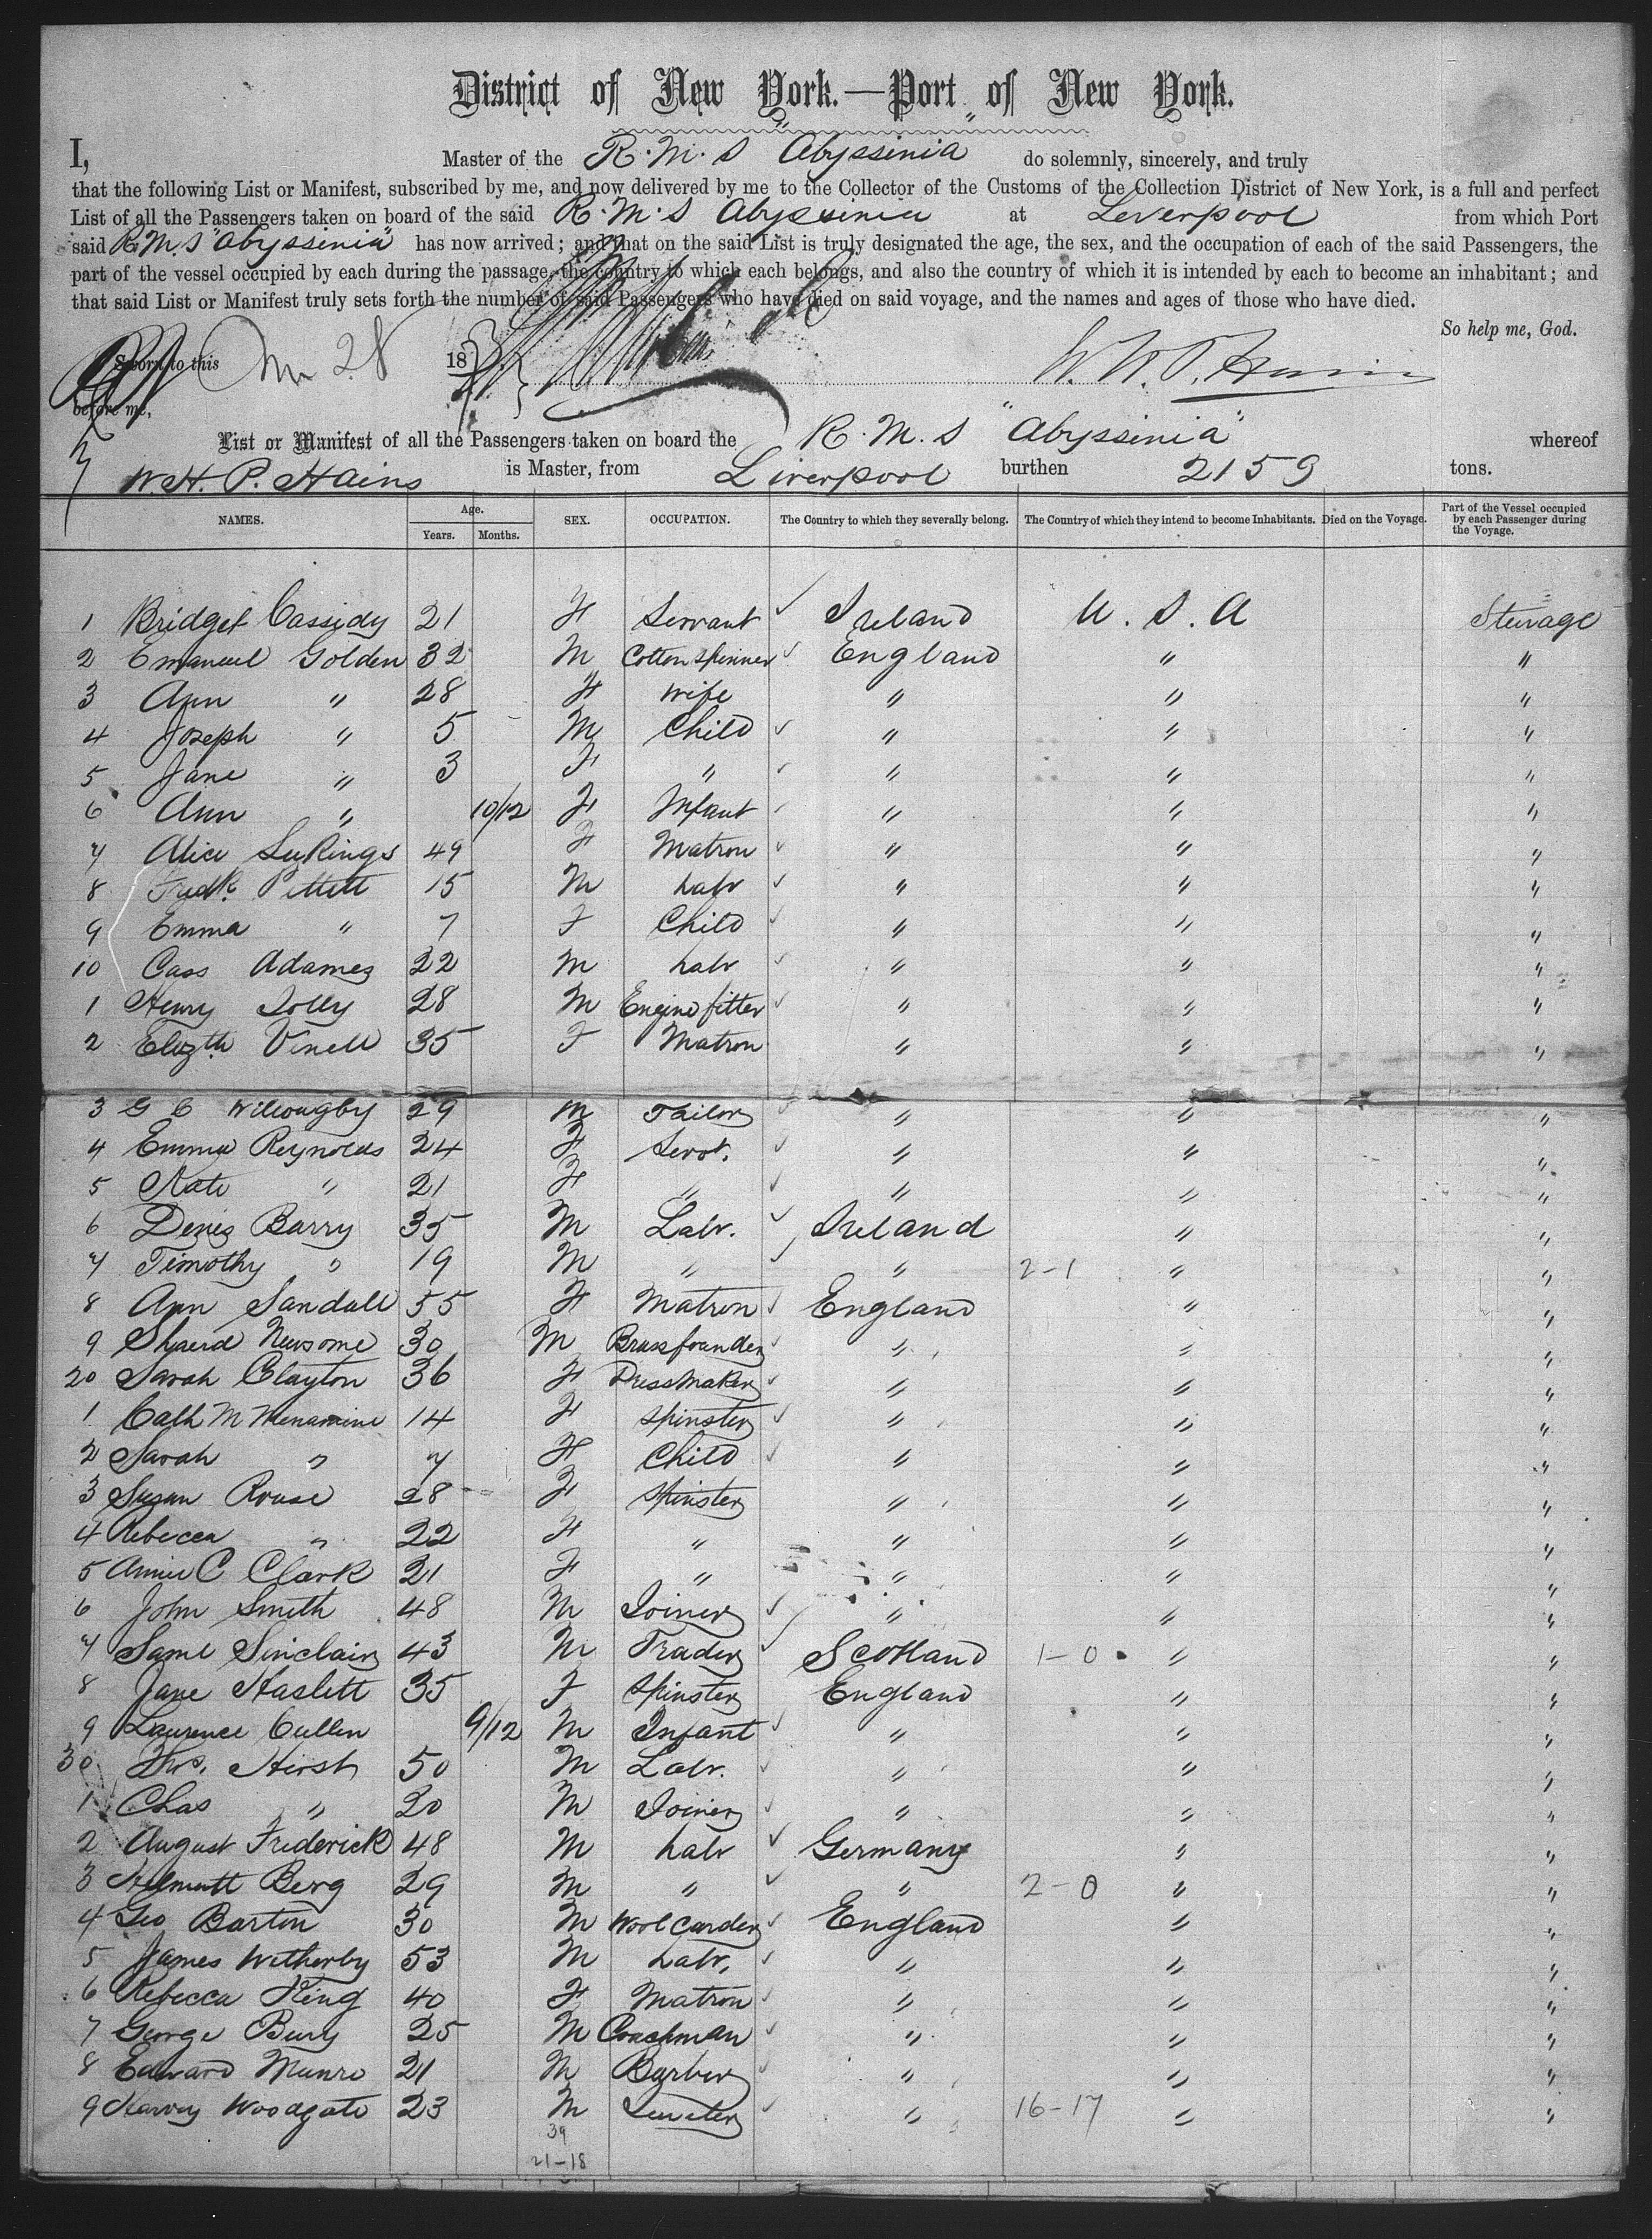 District of New York.—Port of New York.
I, Master of the R.M.S Abyssinia do solemnly, sincerely, and truly
that the following List or Manifest, subscribed by me, and now delivered by me to the Collector of the Customs of the Collection District of New York, is a full and perfect
List of all the Passengers taken on board of the said R.M.S Abyssinia at Leverpool from which Port
said R.M.S "Abyssinia" has now arrived; and that on the said List is truly designated the age, the sex, and the occupation of each of the said Passengers, the
part of the vessel occupied by each during the passage, the country to which each belongs, and also the country of which it is intended by each to become an inhabitant; and
that said List or Manifest truly sets forth the number of said Passengers who have died on said voyage, and the names and ages of those who have died.
So help me, God.
Sworn to this 28 18
before me,
List or Manifest of all the Passengers taken on board the R.M.S "Abyssinia" whereof
W.H.P. Hains is Master, from Liverpool burthen 2159 tons.
NAMES. Age. Years. Months. SEX. OCCUPATION. The Country to which they severally belong. The Country of which they intend to become Inhabitants. Died on the Voyage. Part of the Vessel occupied by each Passenger during the Voyage.
1 Bridget Cassidy 21 F Servant Ireland U.S.A Steerage
2 Emanuel Golden 32 M Cotton Spinner England " "
3 Ann " 28 F wife " " "
4 Joseph " 5 M Child " " "
5 Jane " 3 F " " " "
6 Ann " 10/12 F Infant " " "
7 Alice 49 F Matron " " "
8 Fredk. 15 M Labr " " "
9 Emma " 7 F Child " " "
10 Cass Adames 22 M Labr " " "
1 Henry Jolly 28 M Engine fitter " " "
2 Elizth Vinell 35 F Matron " " "
3 G C Willougby 29 M Tailor " " "
4 Emma Reynolds 24 F Servt. " " "
5 Kate " 21 F " " " "
6 Denis Barry 35 M Labr. Ireland " "
7 Timothy " 19 M " " 2-1 " "
8 Ann Sandall 55 F Matron England " "
9 Newsome 30 M Brassfounder " " "
20 Sarah Clayton 36 F Dressmaker " " "
1 Cath McMenamine 14 F Spinster " " "
2 Sarah " 7 F Child " " "
3 Susan Rouse 28 F Spinster " " "
4 Rebecca " 22 F " " " "
5 Annie C Clark 21 F " " " "
6 John Smith 48 M Joiner " " "
7 Saml Sinclair 43 M Trader Scotland 1-0 " "
8 Jane Haslett 35 F Spinster England " "
9 Laurence Cullen 9/12 M Infant " " "
30 Thos. Hirst 50 M Labr. " " "
1 Chas " 20 M Joiner " " "
2 August Frederick 48 M Labr Germany " "
3 Helmutt Berg 29 M " " 2-0 " "
4 Geo Barton 30 M Wool Carder England " "
5 James Witherby 53 M Labr. " " "
6 Rebecca King 40 F Matron " " "
7 George Bury 25 M Coachman " " "
8 Edward Munro 21 M Barber " " "
9 Harvey Woodgate 23 M " 16-17 " "
39
21-18